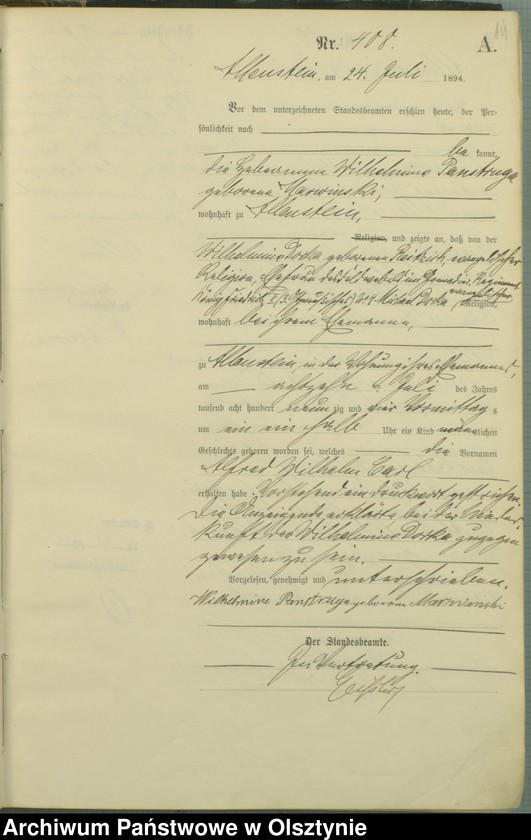 14
Nr. 408. A.
Allenstein, am 24. Juli 1894.
Vor dem unterzeichneten Standesbeamten erschien heute, der Per-
sönlichkeit nach
be kannt,
die Hebamme Wilhelmine Panstruga
geborene Marwinski,
wohnhaft zu Allenstein,
Religion, und zeigte an, daß von der
Wilhelmine geborenen evangelischer
Religion, Ehefrau des Feldwebels im Grenadier Regiment
König Friedrich II (3. Ostpreußisches) № 4 evangelischer Religion,
wohnhaft bei ihrem Ehemanne,
zu Allenstein, in der Wohnung ihres Ehemannes,
am achtzehn ten Juli des Jahres
tausend acht hundert neun zig und vier Vormittag s
um ein ein halb Uhr ein Kind männlichen
Geschlechts geboren worden sei, welches die Vornamen
Alfred Wilhelm Carl
erhalten habe. Vorstehend ein Druckwort gestrichen.
Die Anzeigende erklärte bei der Nieder-
kunft der Wilhelmine zugegen
gewesen zu sein.
Vorgelesen, genehmigt und unterschrieben.
Wilhelmine Panstruga geborene Marwinski
Der Standesbeamte.
In Vertretung.
Archiwum Państwowe w Olsztynie